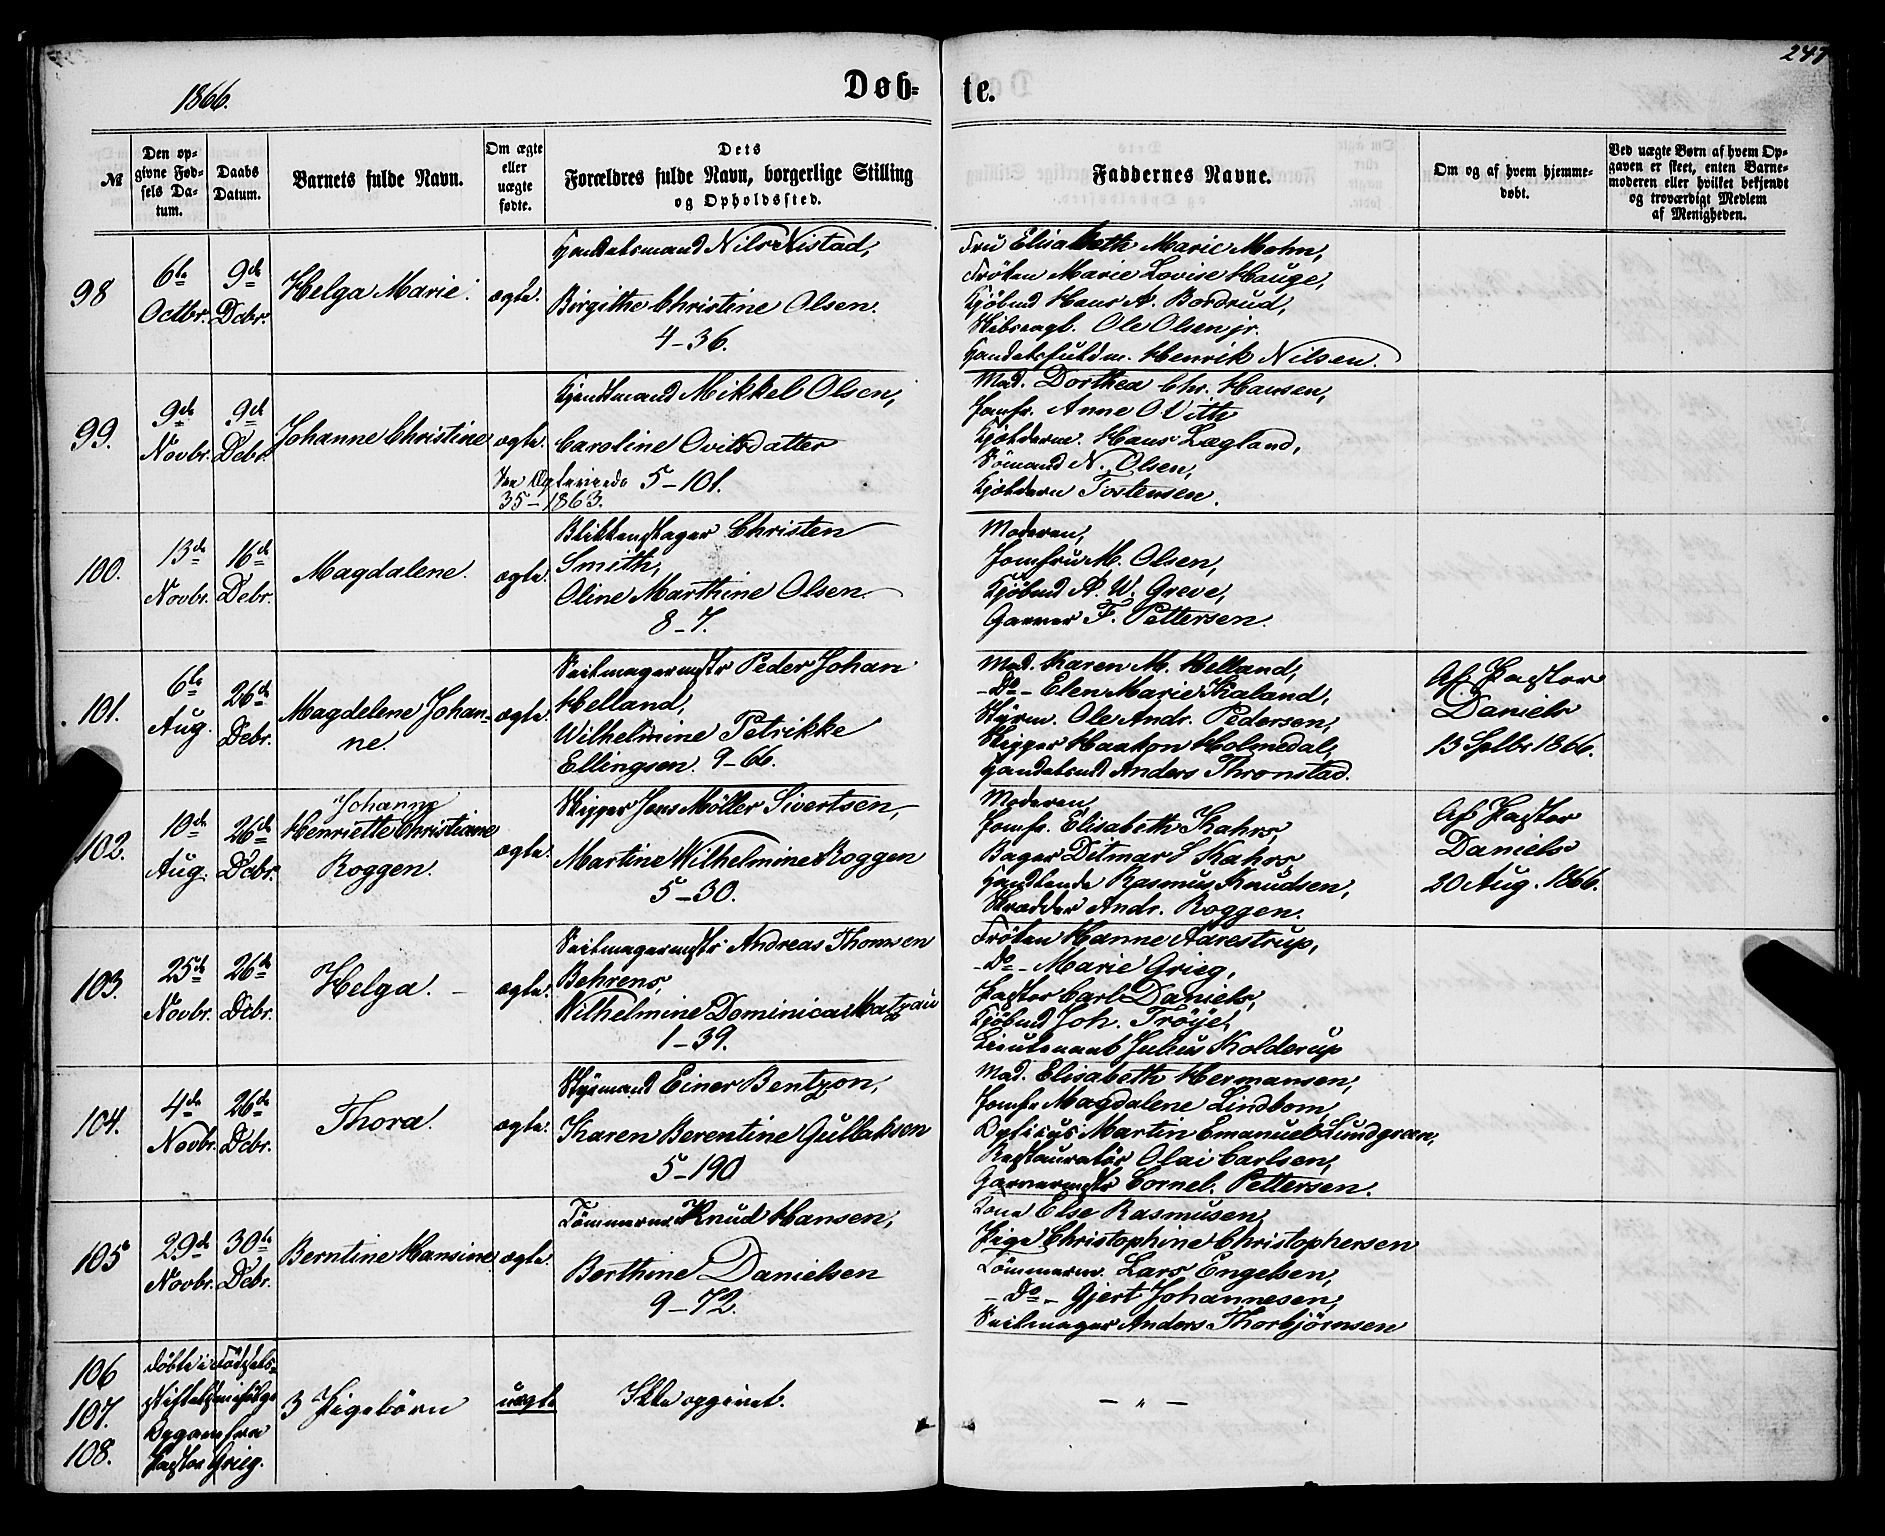 247
1866.
Døb-
te.
№
Den op-
givne Fød-
sels Da-
tum.
Daabs
Datum.
Barnets fulde Navn.
Om ægte
eller
uægte
fødte.
Dets
Forældres fulde Navn, borgerlige Stilling
og Opholdssted.
Faddernes Navne.
Om og af hvem hjemme-
døbt.
Ved uægte Børn af hvem Op-
gaven er skeet, enten Barne-
moderen eller hvilket bekjendt
og troværdigt Medlem
af Menigheden.
98
6te
Octbr.
9de
Dcbr.
Helga Marie.
ægte.
Handelsmand Nils Nistad,
Birgithe Christine Olsen.
4-36.
Fru Elisabeth Marie Mohn,
Frøken Marie Lovise Hauge,
Kjøbmd Hans A. Bordrud,
Skibsregl. Ole Olsen jr.
Handelsfuldm. Henrik Nilsen.
99.
9de
Novbr.
9de
Debr.
Johanne Christine
ægte.
Mikkel Olsen,
Caroline Ovitsdatter
5-101.
35-1863.
Mad. Dorthea Chr. Hansen,
Jomfr. Anne O Vith
Kjølderm. Hans Lægland,
Sømand N. Olsen,
Kjølderm Tostensen.
100.
13de
Novbr.
16de
Debr.
Magdalene.
ægte.
Blikkenslager Christen
Smith,
Oline Marthine Olsen.
8-7.
Moderen,
Jomfru M. Olsen,
Kjøbmd A. W. Greve,
Garver F. Pettersen.
101.
6te
Aug.
26de
Debr.
Magdelene Johan-
ne.
ægte.
Seilmagermstr Peder Johan
Helland,
Wilhelmine Petrikke
Ellingsen. 9-66.
Mad. Karen M. Helland,
-Do- Elen Marie Kaland,
Styrm. Ole Andr. Pedersen,
Skipper Haakon Holmedal,
Handelsmd Anders Thronstad.
Af Pastor
Daniels
13 Septbr 1866.
102.
10de
Aug.
26de
Dcbr.
Johanne
Henriette Christiane
Roggen.
ægte.
Skipper Jens Møller Sivertsen,
Martine Wilhelmine Roggen
5-30.
Moderen,
Jomfr. Elisabeth Kahrs,
Bager Ditmar S Kahrs,
Handlende Rasmus Knudsen,
Skrædder Andr. Roggen.
Af Pastor
Daniels
20 Aug. 1866.
103.
25de
Novbr.
26de
Dcbr.
Helga.
ægte.
Seilmagermstr Andreas Thomsen
Behrens,
Wilhelmine Dominica Matzau
1-39.
Frøken Hanne Aarestrup,
-Do- Marie Grieg,
Pastor Carl Daniels,
Kjøbmd Joh. Trøye,
Lieutenant Julius Kolderup
104.
4de
Novbr.
26de
Dcbr.
Thora.
ægte.
Styrmand Einer Bentzon,
Karen Berentine Gullaksen
5-190
Mad. Elisabeth Hermansen,
Jomfr Magdalene Lindbom,
Opticus Martin Emanuel Lundgreen,
Restauratør Olai Carlsen,
Garvermstr Cornel. Pettersen.
105
29de
Novbr.
30te
Dcbr.
Berntine Hansine
ægte.
Tømmerm. Knud Hansen,
Berthine Danielsen
9-72.
Kone Else Rasmusen,
Pige Christophine Christophersen
Tømmerm. Lars Engelsen,
-Do- Gjert Johannesen,
Seilmager Anders Thorbjørnsen
106
107.
108.
døbte i Fødsels-
stiftelsen ifølge
Opgave fra
Pastor Grieg.
3 Pigebørn
uægte
Ikke opgivet.
- " -